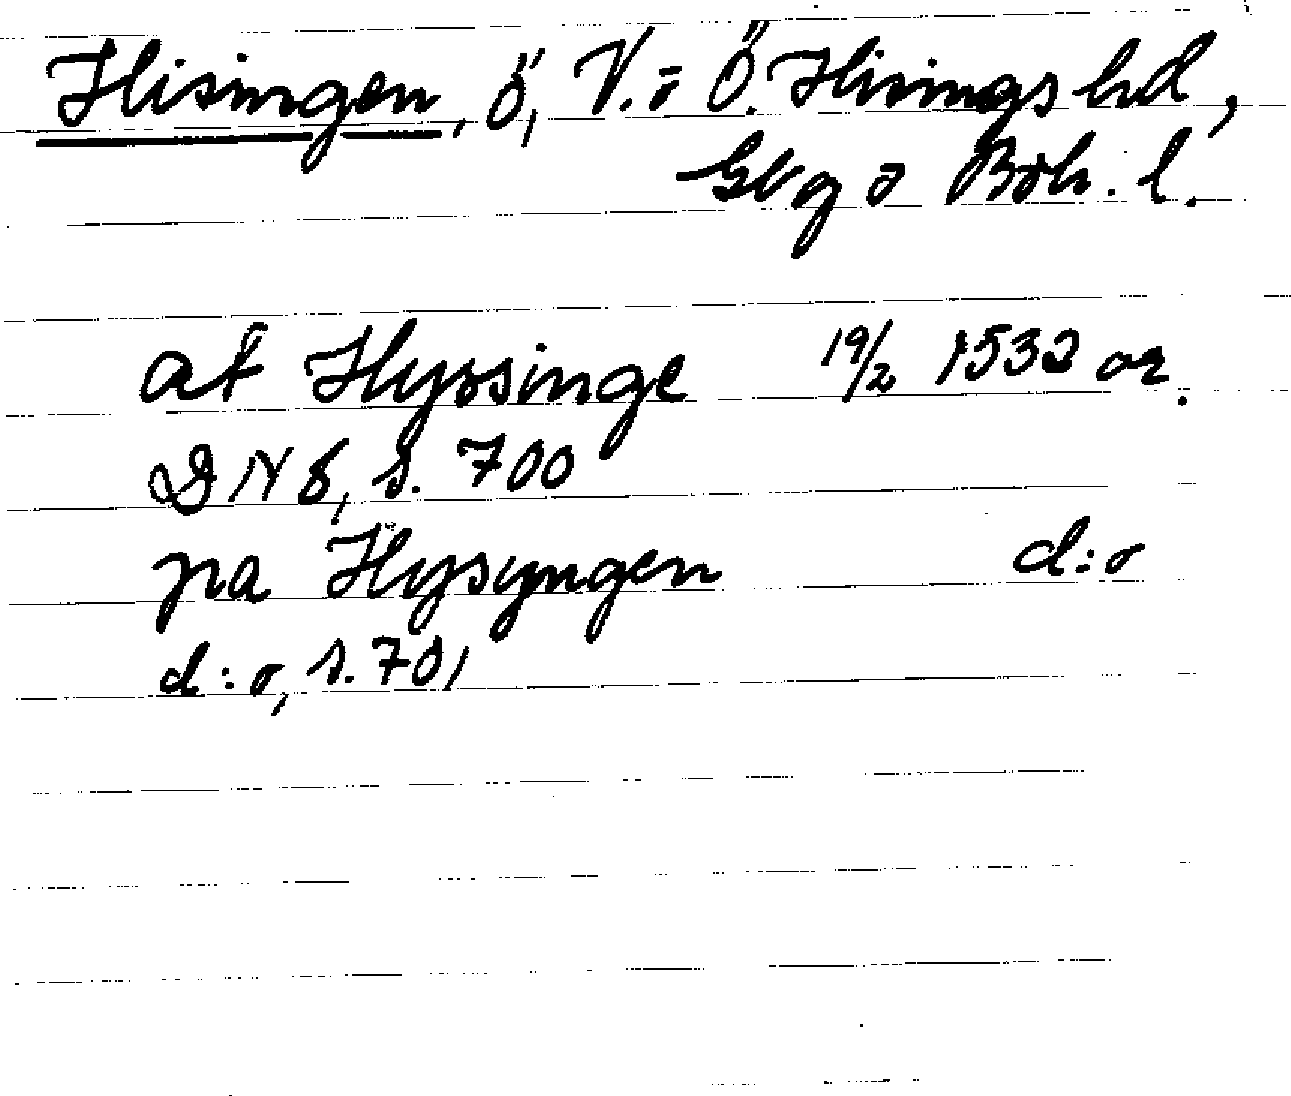 Hisingen, ö, V. o Ö. Hisings hd,
Gbg o Boh. l.
at Hyssinge 19/2 1532 or.
DN 8, s. 700
pa Hysyngen d:o
d:o, s. 701